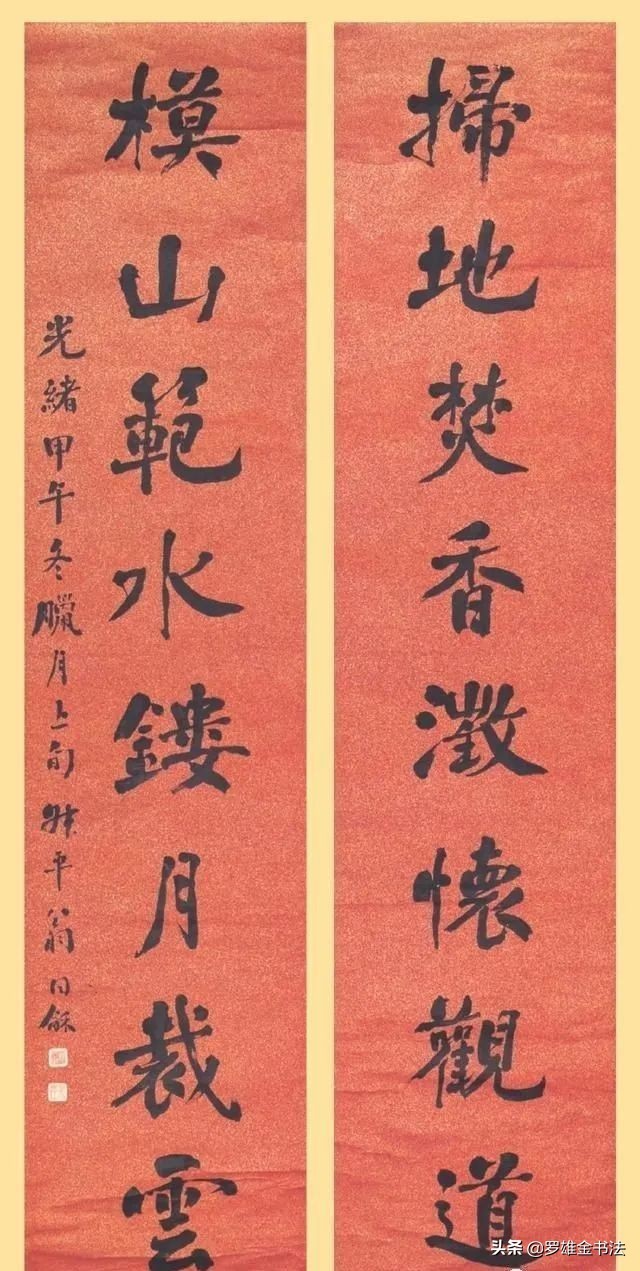 掃地焚香澂懷觀道
模山範水鏤月裁雲
光緒甲午冬臘月上旬叔平翁同龢
头条@罗雄金书法